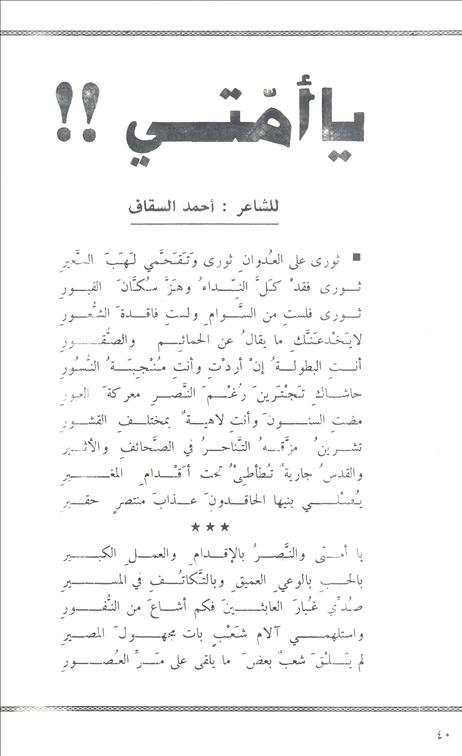 يا أمّتي !!
للشاعر : أحمد السقاف
■ ثورى على العُدوانِ ثورى وَتَقَحَّمي لَهَبَ السَّعير
ثورى فقدْ كَلَّ النِّداءُ وهَزَّ سُكَّانَ القبور
ثورى فلستِ من السَّوامِ ولستِ فاقدةَ الشُّعور
لايَخْدعَنَّكِ ما يقالُ عن الحمائمِ والصُّقور
أنتِ البطولةُ إنْ أردْتِ وأنتِ مُنْجِبَةُ النُّسُور
حاشاكِ تَجْتَرِّينَ رُغْمَ النَّصرِ معركةَ العبور
مضتِ السنونَ وأنتِ لاهيةٌ بمختلفِ القشور
تشرينُ مزَّقهُ التَّناحرُ في الصَّحائفِ والأثير
والقدسُ جاريةٌ تُطأطِىءُ تحت أقدامِ المغير
يُصْلي بنيها الحاقدونَ عذابَ منتصرٍ حقير
★★★
يا أمتى والنَّصرُ بالإقدامِ والعملِ الكبير
بالحبِ بالوعي العميقِ وبالتَّكاتُفِ في المسير
صُدِّي غُبارَ العابثينَ فكم أشاعَ من النُّفور
واستلهمي آلام شَعْبٍ بات مجهولَ المصير
لم يَلْقَ شعبٌ بعضَ ما يلقى على مَرِّ العصور
٤٠